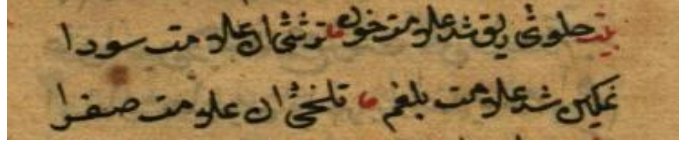 بیت حلوئی ریق شد علامت خون ترشئی ان علامت سودا
نمکین شد علامت بلغم تلخئی ان علامت صفرا